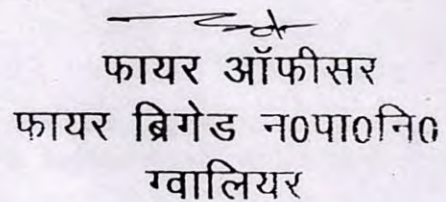 फायर ऑफीसर
फायर ब्रिगेड न0पा0नि0
ग्वालियर